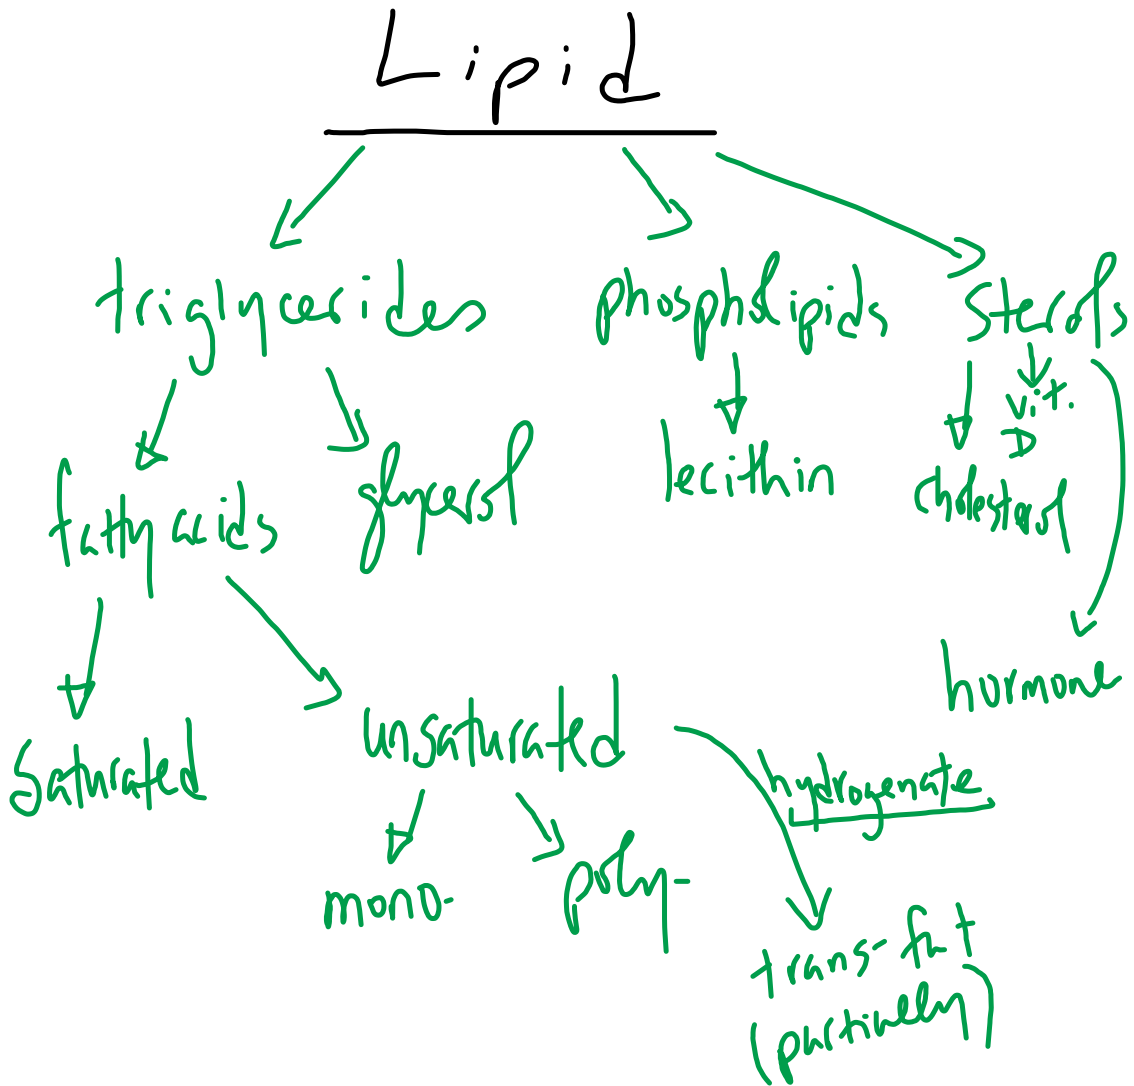 Lipid
triglycerides phospholipids sterols
vit.
D
fatty acids glycerol lecithin cholesterol
hormone
saturated unsaturated
hydrogenate
mono- poly-
trans-fat
(partially)